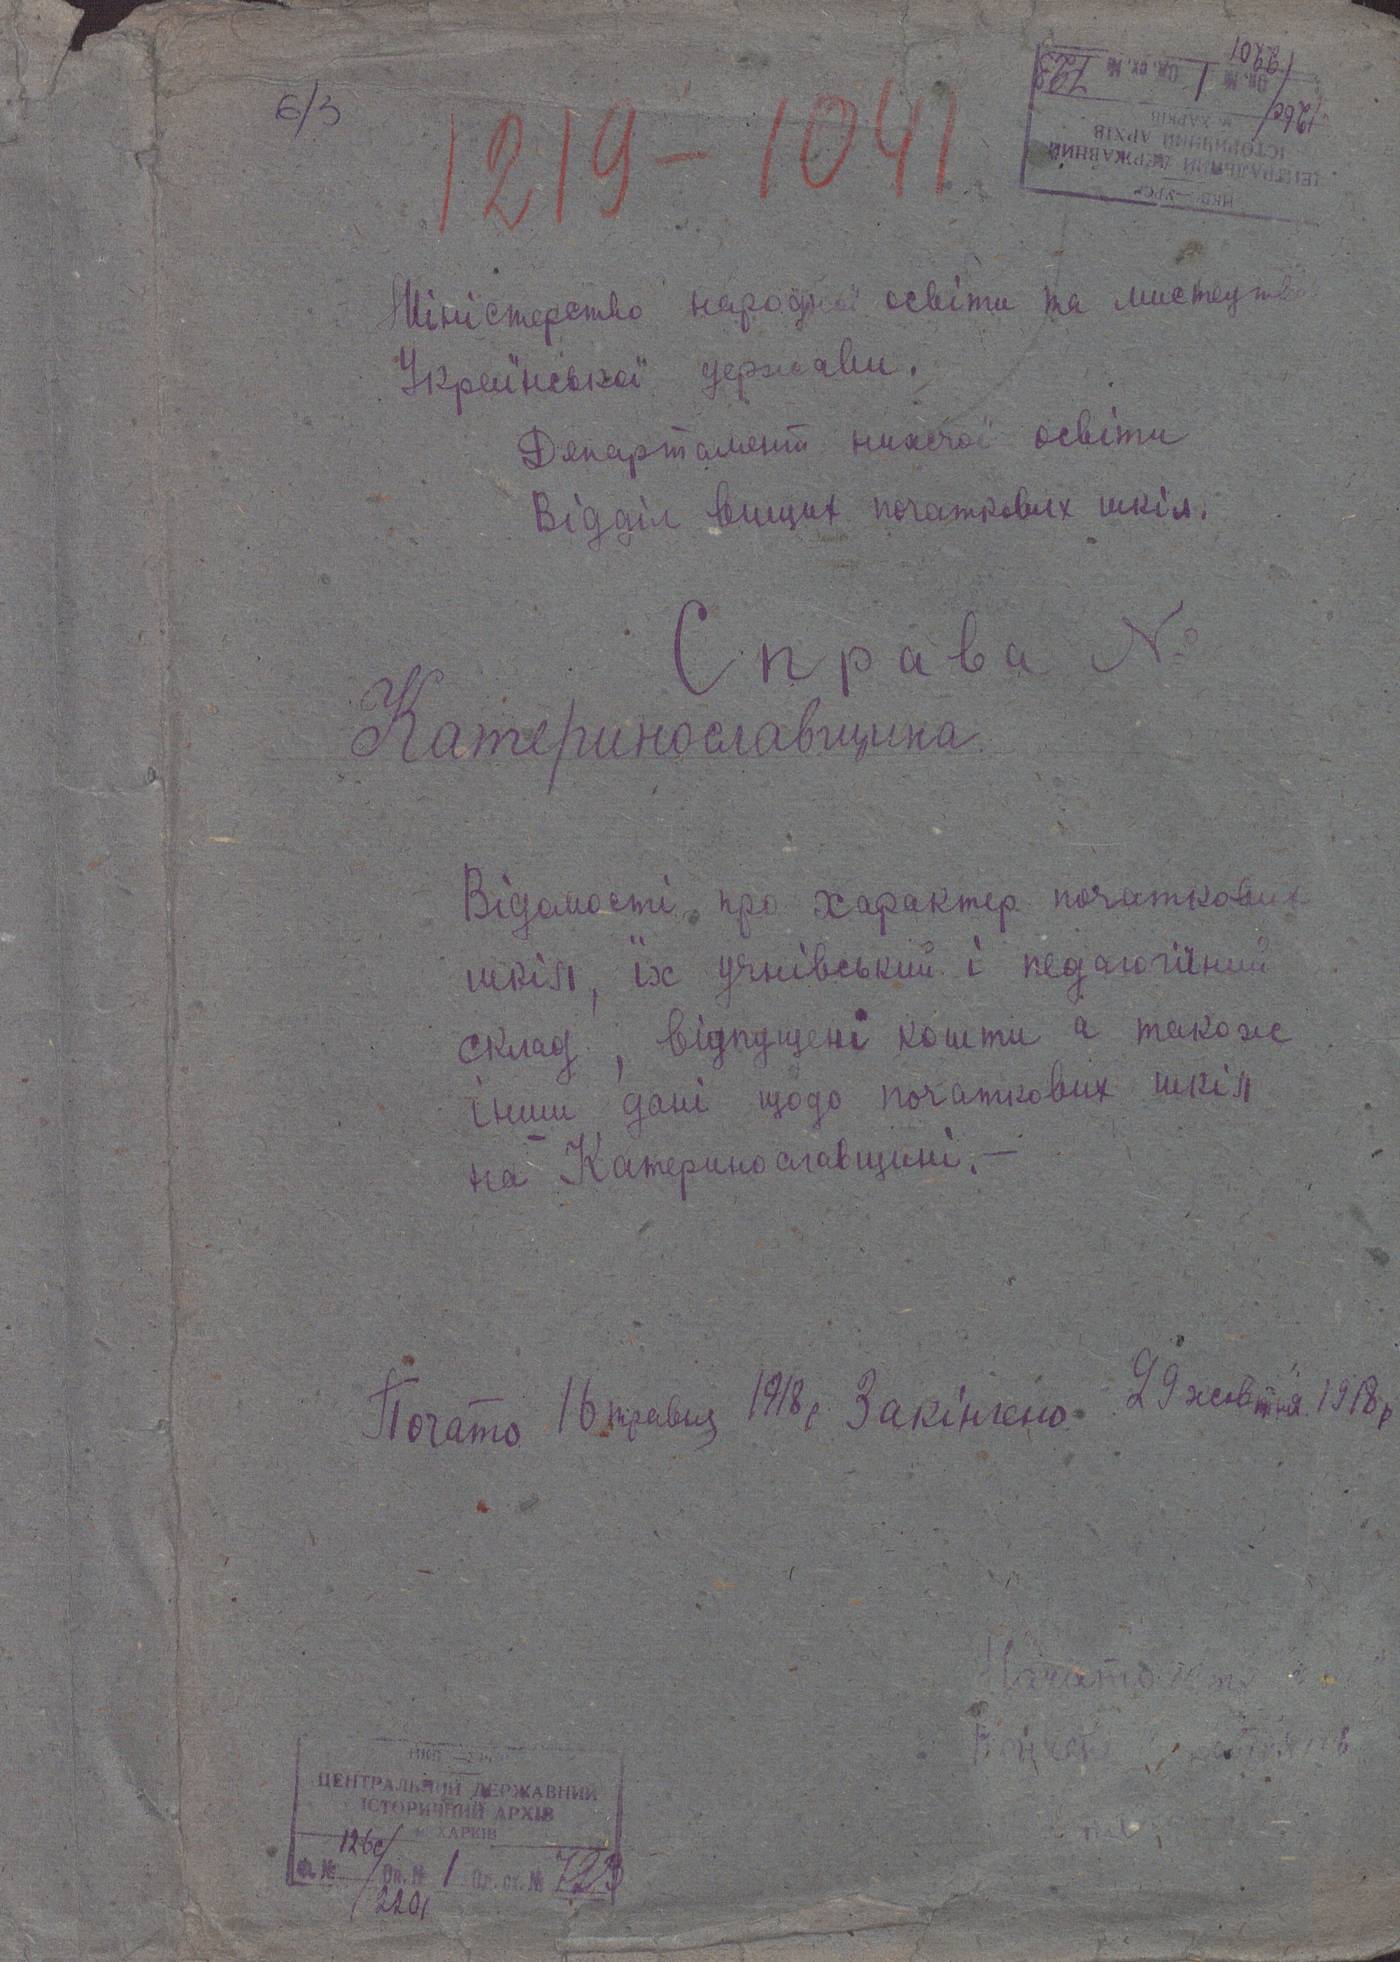 6/3
1219-1041
НКВ — УРСР
ЦЕНТРАЛЬНИЙ ДЕРЖАВНИЙ
ІСТОРИЧНИЙ АРХІВ
м. ХАРКІВ
126с/2201 Оп. № 1 Од. сх. № 723
Міністерство народної освіти та мистецтва
Української держави.
Департамент нижчої освіти
Відділ вищих початкових шкіл.
Справа №
Катеринославщина
Відомості про характер початкових
шкіл, їх учнівський і педагогічний
склад, відпущені кошти а також
інши дані щодо початкових шкіл
на Катеринославщині.—
Почато 16 травня 1918 р. Закінчено 29 жовтня 1918 р
Начато
ЦЕНТРАЛЬНИЙ ДЕРЖАВНИЙ
ІСТОРИЧНИЙ АРХІВ
м. ХАРКІВ
Ф. № 126с/2201 Оп. № 1 Од. сх. № 723